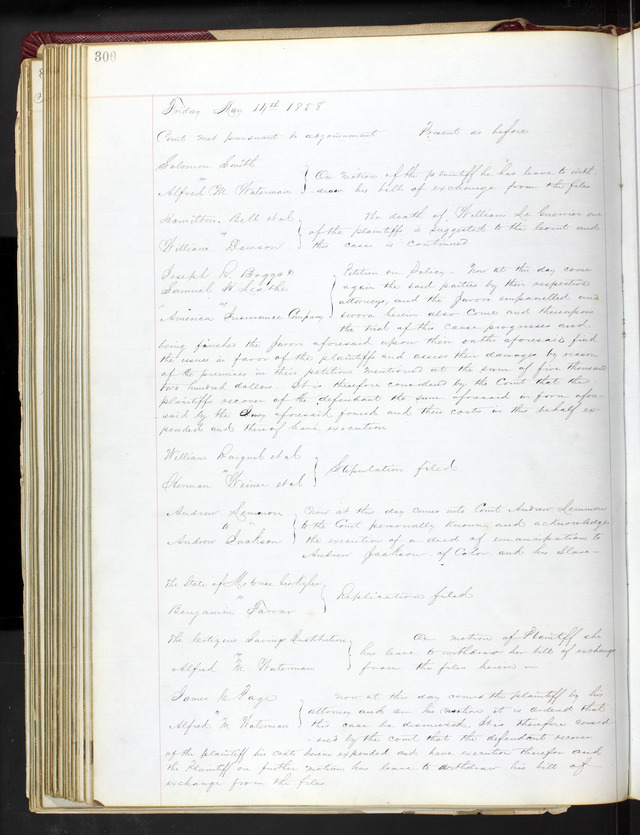 300
Friday May 14th 1858
Court met pursuant to adjournment Present as before
Solomon Smith
vs
Alfred M. Waterman
On motion of the plaintiff he has leave to with-
draw his bill of exchange from the files
Hamilton Bell et al
vs
William Dawson
The death of William Le Guerrier one
of the plaintiffs is suggested to the Court and
this case is continued
Joseph R. Boggs &
Samuel H Leathe
vs
America Insurance Company
Petition on Policy - Now at this day come
again the said parties by their respective
attorneys, and the Jurors empanelled and
sworn herein also come and thereupon
the trial of this cause progresses and
being finished the Jurors aforesaid upon their oaths aforesaid find
the issues in favor of the plaintiffs and assess their damages by reason
of the premises in their petition mentioned at the sum of five thousand
two hundred dollars. It is therefore considered by the Court that the
plaintiffs recover of the defendant the sum aforesaid in form afore-
said by the Jury aforesaid found and their costs in this behalf ex-
pended and thereof have execution
William et al
vs
Herman Weiner et al
Stipulation filed
Andrew Lemmon
to
Andrew Jackson
Now at this day comes into Court Andrew Lemmon
to the Court personally known, and acknowledges
the execution of a deed of emancipation to
Andrew Jackson of Color and his Slave -
The State of Mo to use
vs
Benjamin Farrar
Replication filed
The Citizens Savings Institution
vs
Alfred M. Waterman
On motion of Plaintiff she
has leave to withdraw her bill of exchange
from the files herein
James E Page
vs
Alfred M Waterman
Now at this day comes the plaintiff by his
attorney and on his motion it is ordered that
this case be dismissed. It is therefore consid
-ered by the court that the defendant recover
of the plaintiff his costs herein expended and have execution therefor and
the Plaintiff on further motion has leave to withdraw his bill of
exchange from the files